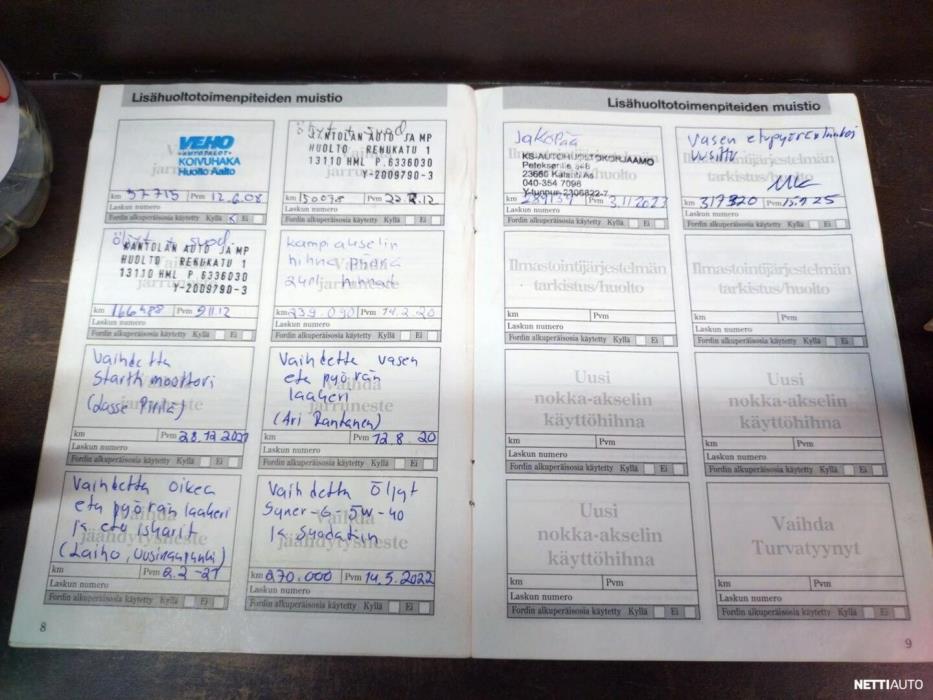 Lisähuoltotoimenpiteiden muistio
VEHO
AUTOTALOT
KOIVUHAKA
Huolto Aalto
km 57715 Pvm 12.6.08
Laskun numero
Fordin alkuperäisosia käytetty Kyllä Ei
öljyt + suod.
KANTOLAN AUTO JA MP
HUOLTO RENUKATU 1
13110 HML P.6336030
Y-2009790-3
km 150078 Pvm
Laskun numero
Fordin alkuperäisosia käytetty Kyllä Ei
öljyt + suod.
KANTOLAN AUTO JA MP
HUOLTO RENUKATU 1
13110 HML P.6336030
Y-2009790-3
km Pvm 9.11.12
Laskun numero
Fordin alkuperäisosia käytetty Kyllä Ei
kampiakselin
hihna pyörä
jarruneste
km 239.090 Pvm 14.2.20
Laskun numero
Fordin alkuperäisosia käytetty Kyllä Ei
Vaihdettu
Startti moottori
(Lasse Pirilä)
jarruneste
km Pvm 28.12.2021
Laskun numero
Fordin alkuperäisosia käytetty Kyllä Ei
Vaihdettu vasen
eta pyörän
laakeri
(Ari Rantanen)
Vaihda
jarruneste
km Pvm 12.8.20
Laskun numero
Fordin alkuperäisosia käytetty Kyllä Ei
Vaihdettu oikea
eta pyörän laakeri
ja eta iskarit
(Laiho, Uusikaupunki)
Vaihda
jäähdytysneste
km Pvm 2-21
Laskun numero
Fordin alkuperäisosia käytetty Kyllä Ei
Vaihdettu Öljyt
5W-40
ja Suodatin
Vaihda
jäähdytysneste
km 270.000 Pvm 14.5.2022
Laskun numero
Fordin alkuperäisosia käytetty Kyllä Ei
8
Lisähuoltotoimenpiteiden muistio
Jakopää
KS-AUTOHUOLTOKORJAAMO
23660 Kalanti As
040-354 7098
Y-tunnus
km Pvm 3.11.2023
Laskun numero
Fordin alkuperäisosia käytetty Kyllä Ei
Vasen etupyörän
uusittu
Ilmastointijärjestelmän
tarkistus/huolto
km 317320 Pvm
Laskun numero
Fordin alkuperäisosia käytetty Kyllä Ei
Ilmastointijärjestelmän
tarkistus/huolto
km Pvm
Laskun numero
Fordin alkuperäisosia käytetty Kyllä Ei
Ilmastointijärjestelmän
tarkistus/huolto
km Pvm
Laskun numero
Fordin alkuperäisosia käytetty Kyllä Ei
Uusi
nokka-akselin
käyttöhihna
km Pvm
Laskun numero
Fordin alkuperäisosia käytetty Kyllä Ei
Uusi
nokka-akselin
käyttöhihna
km Pvm
Laskun numero
Fordin alkuperäisosia käytetty Kyllä Ei
Uusi
nokka-akselin
käyttöhihna
km Pvm
Laskun numero
Fordin alkuperäisosia käytetty Kyllä Ei
Vaihda
Turvatyynyt
km Pvm
Laskun numero
Fordin alkuperäisosia käytetty Kyllä Ei
9
NETTIAUTO